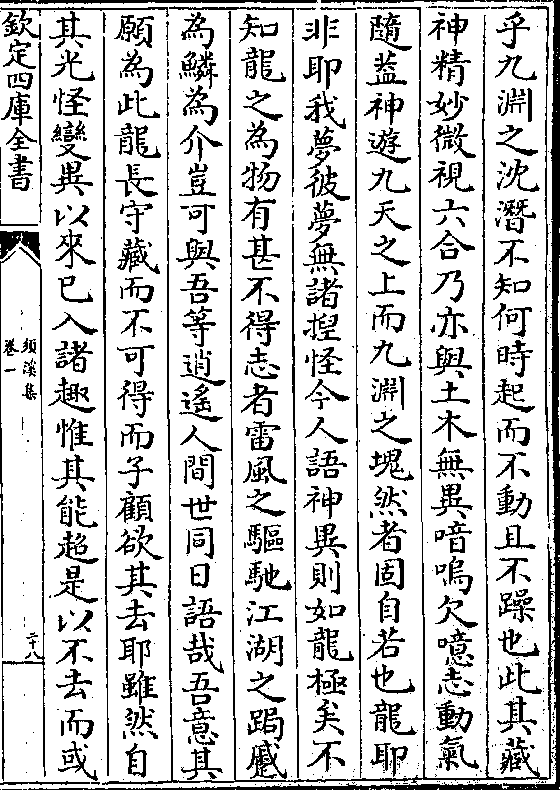 乎九淵之沈潛不知何時起而不動且不躁也此其藏
神精妙微視六合乃亦與土木無異喑嗚欠噫志動氣
隨葢神遊九天之上而九淵之塊然者固自若也龍耶
非耶我夢彼夢無諸揑怪今人語神異則如龍極矣不
知龍之為物有甚不得志者雷風之驅馳江湖之跼蹙
為鱗為介豈可與吾等逍遙人間世同日語哉吾意其
願為此龍長守藏而不可得而子顧欲其去耶雖然自
其光怪變異以來已入諸趣惟其能超是以不去而或
欽定四庫全書
須溪集
卷一
二十八